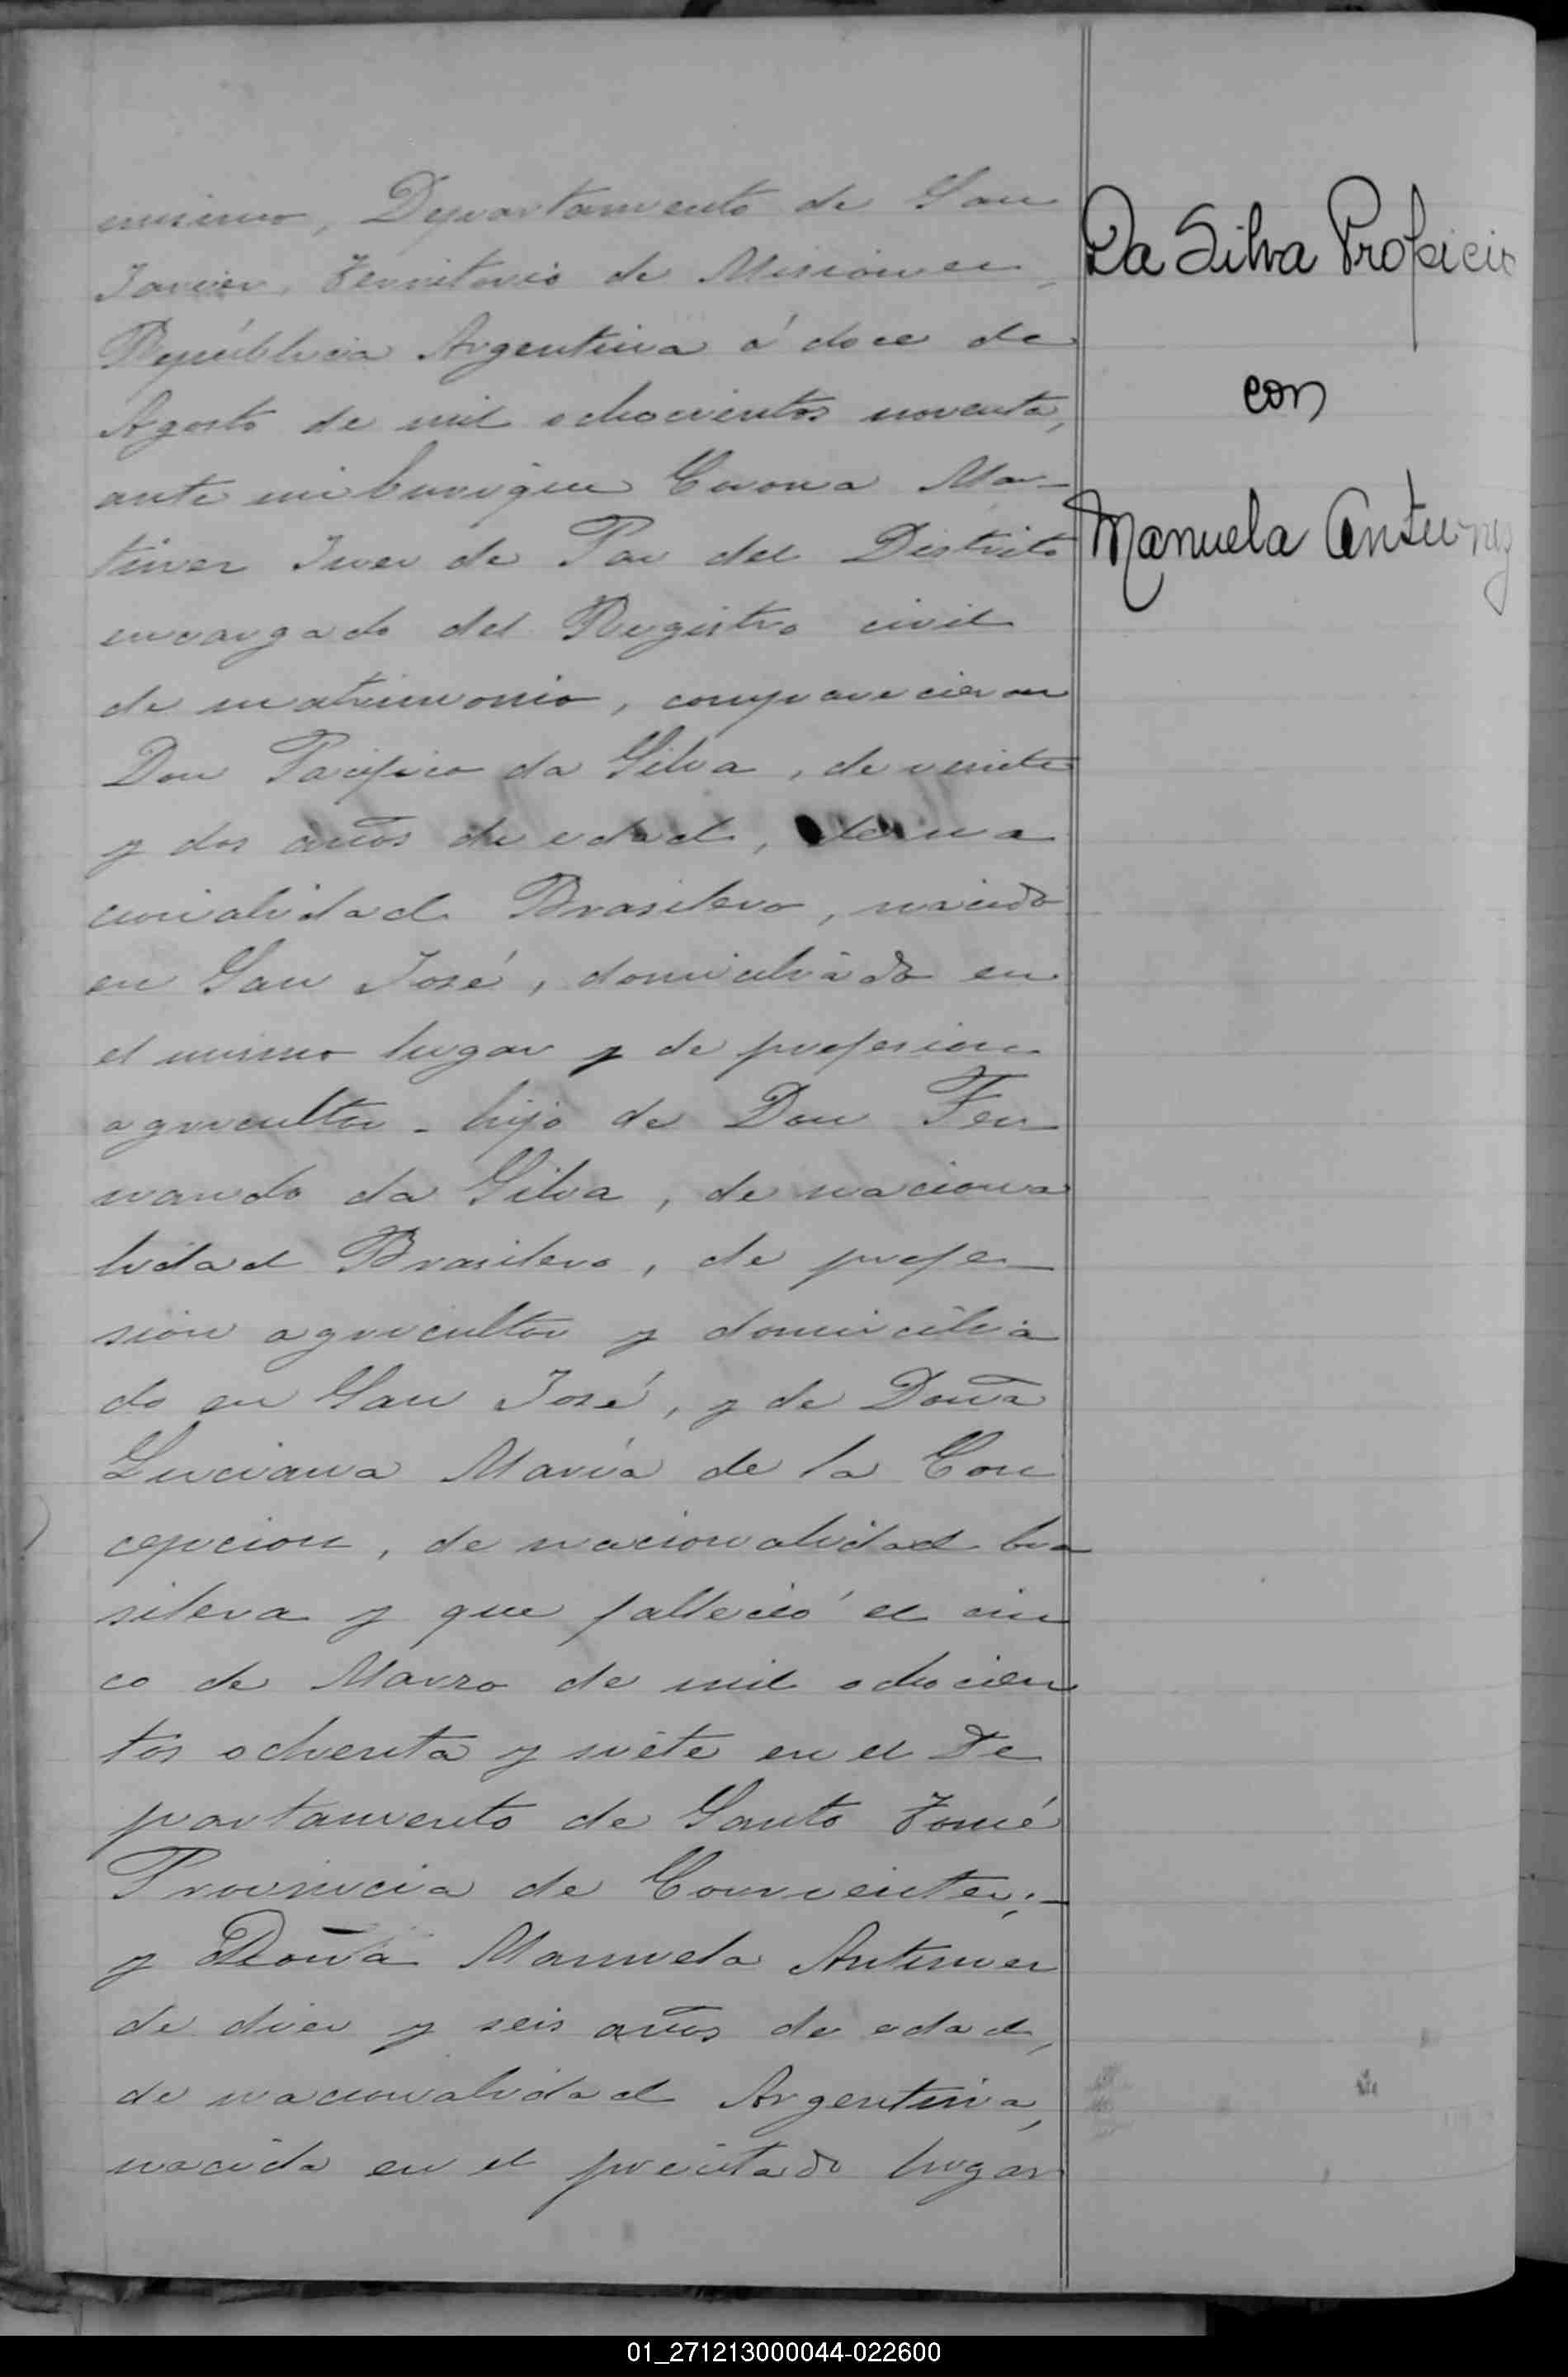 mismo, Departamento de San
Javier, Territorio de Misiones,
República Argentina á doce de
Agosto de mil ochocientos noventa,
ante mi Enrique Corona Mar-
tinez Juez de Paz del Distrito
encargado del Registro civil
de matrimonio, comparecieron
Don Pacífico da Silva, de veinte
y dos años de edad, de na
cionalidad Brasilero, nacido
en San José, domiciliado en
el mismo lugar y de profesion
agricultor - hijo de Don Fer
nando da Silva, de naciona
lidad Brasilero, de profe-
sion agricultor y domicilia
do en San José, y de Doña
Luciana María de la Con
cepcion, de nacionalidad bra
silera y que falleció el cin
co de Marzo de mil ochocien
tos ochenta y siete en el De
partamento de Santo Tomé
Provincia de Corrientes;-
y Doña Manuela Antunez
de diez y seis años de edad,
de nacionalidad Argentina,
nacida en el precitado lugar
Da Silva Propicio
con
Manuela Antunez
01_271213000044-022600